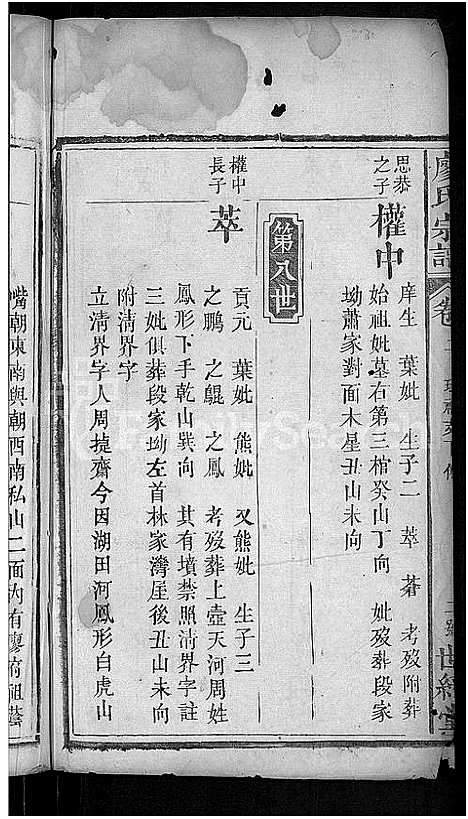 廖氏宗譜
卷
世綵堂
思恭
之子
權中
庠生　葉妣　生子二　萃　莟　考歿附葬
始祖妣墓右第三棺癸山丁向　妣歿葬段家
坳蕭家對面木星丑山未向
第八世
權中
長子
萃
貢元　葉妣　熊妣　又熊妣　生子三
之鵬　之鯤　之鳳　考歿葬上壺天河周姓
鳳形下手乾山巽向　其有墳禁照清界字註
三妣俱葬段家坳左首林家灣屋後丑山未向
附清界字
立清界字人周捷齋今因湖田河鳳形白虎山
嘴朝東南與朝西南私山二面內有廖